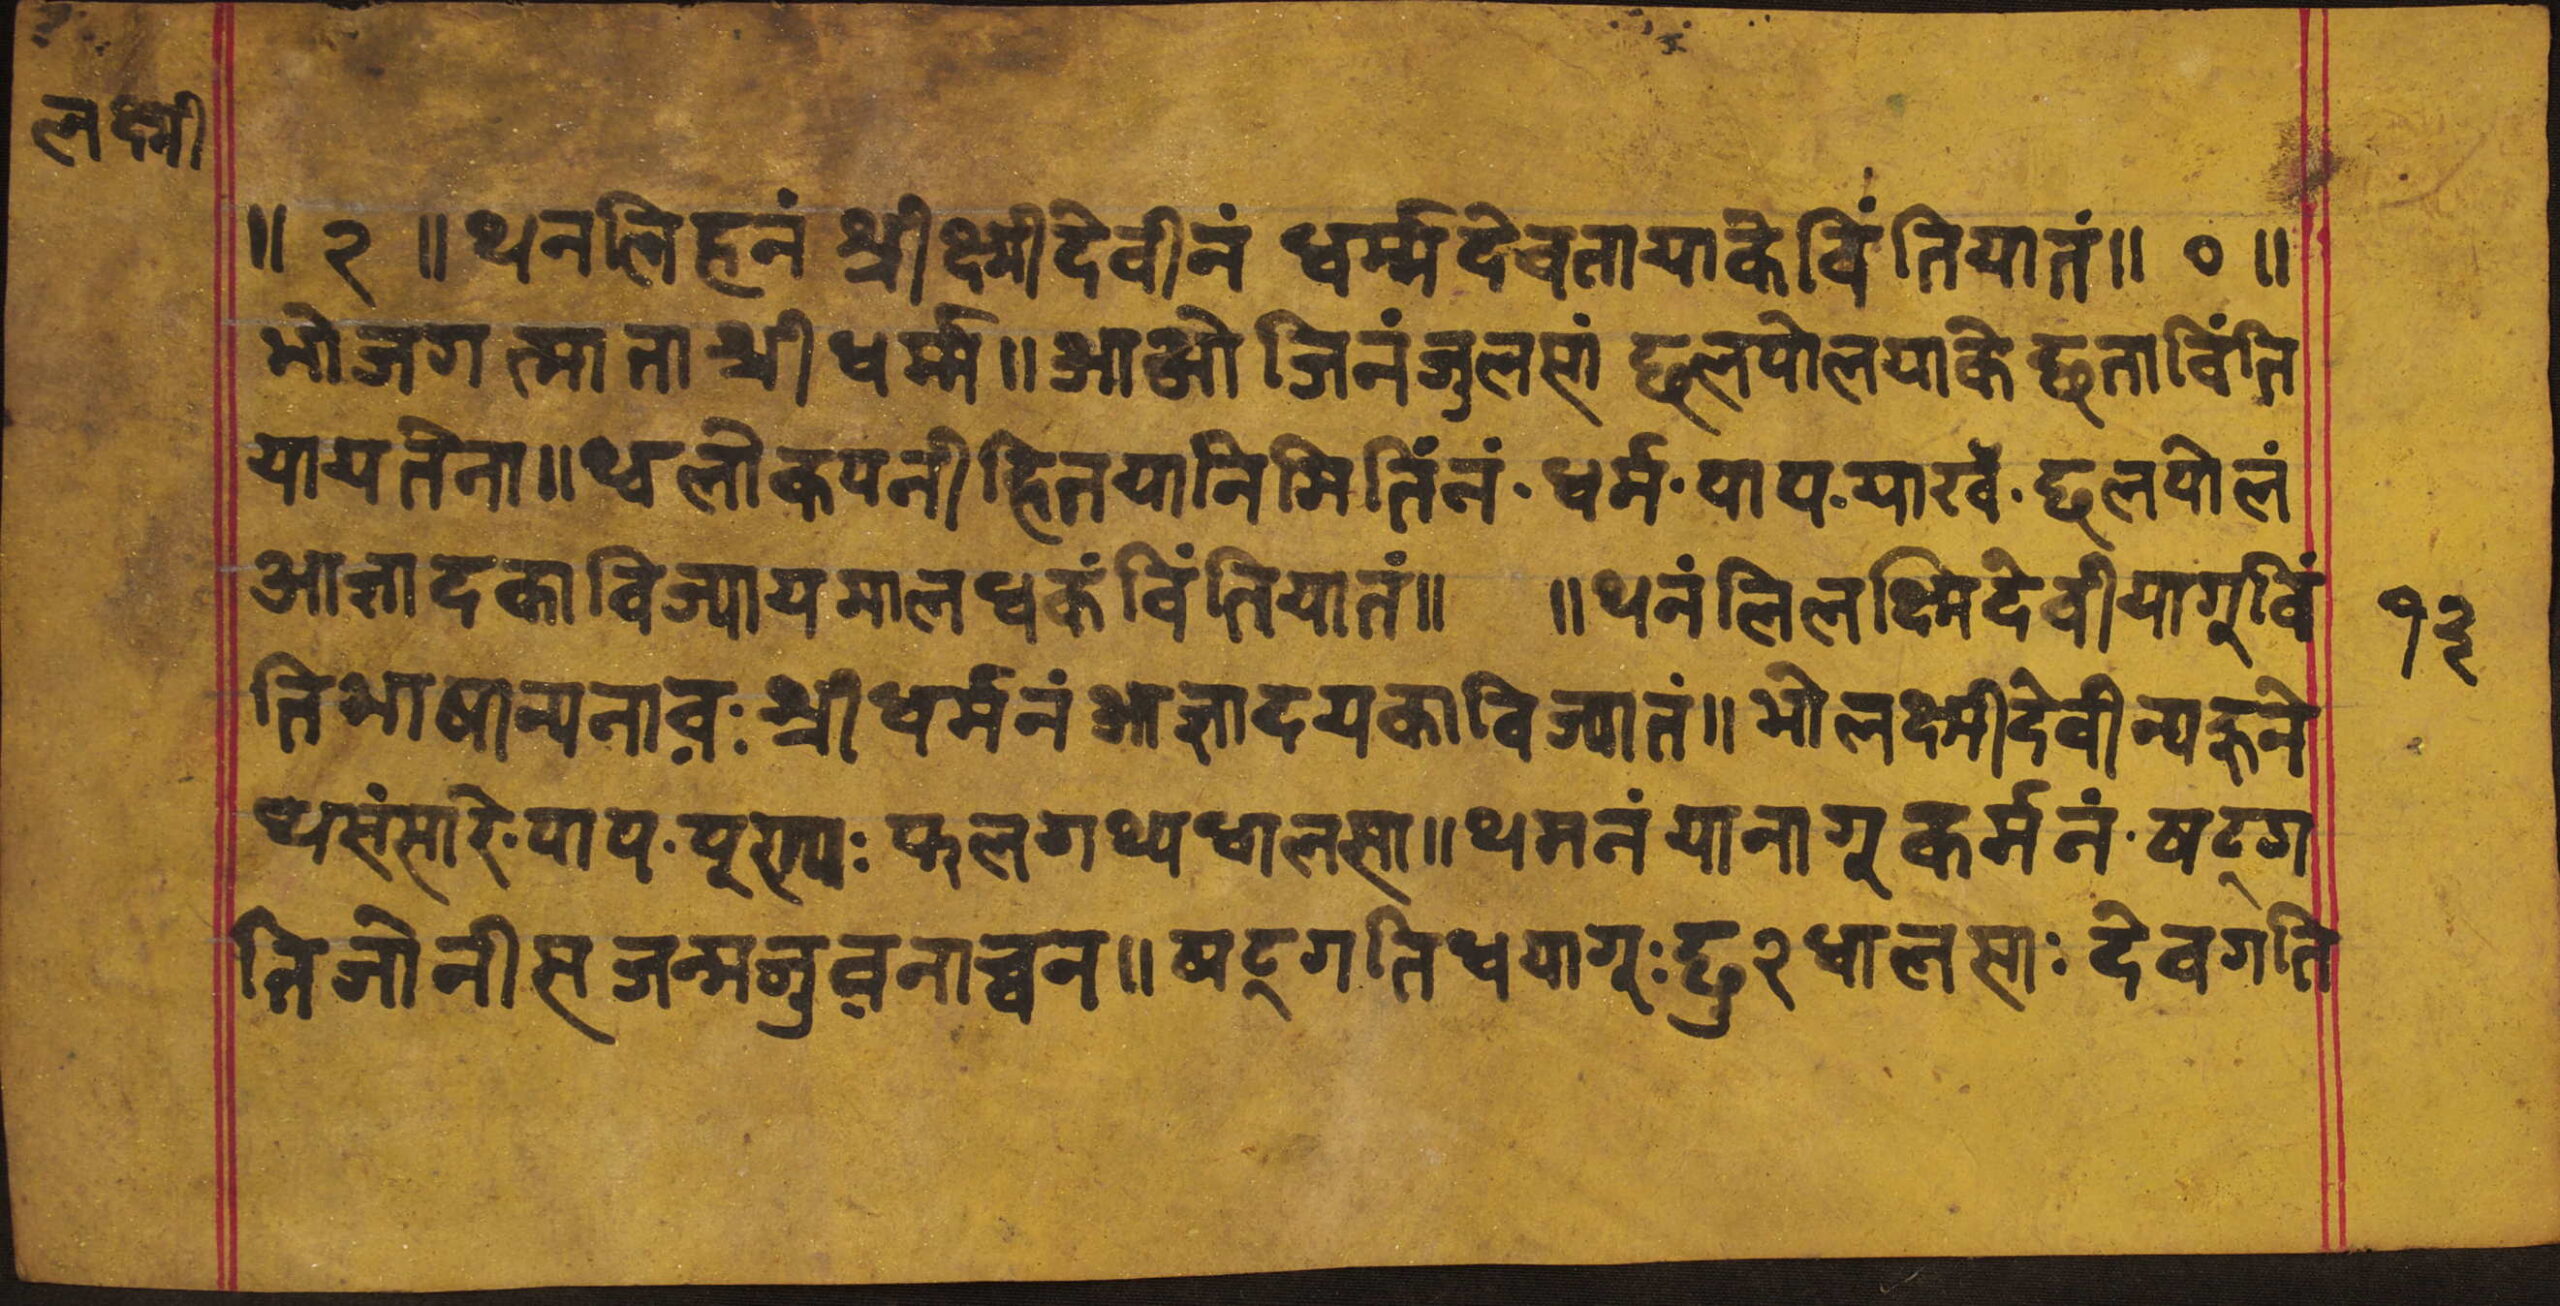 लक्ष्मी
॥ २ ॥ थनलि हनं श्रीक्ष्मीदेवीनं धर्म्मदेवतायाके विंतियातं॥ ० ॥
भो जगत्माता श्रीधर्म्म॥ आओ जिनंजुलसां छलपोलयाके छता विंति
यायतेना॥ थ्व लोकपनी हितया निमितिंनं · धर्म · पाप · याखँ · छलपोलं
आज्ञा दका विज्यायमाल धकं विंतियातं॥ ॥ थनंलि लक्ष्मिदेवीयागू विं
ति भाषा न्यनाव़ः श्रीधर्मनं आज्ञा दयका विज्यातं॥ भो लक्ष्मीदेवी न्यकुने
थ्व संसारे · पाप · पूण्यः फल गथ्य धालसा॥ थमनं यानागू कर्मनं · षट्ग
ति जोनीस जन्मजुव़नाच्वन॥ षट्गति धयागूः छु२ धालसाः देवगति
१३